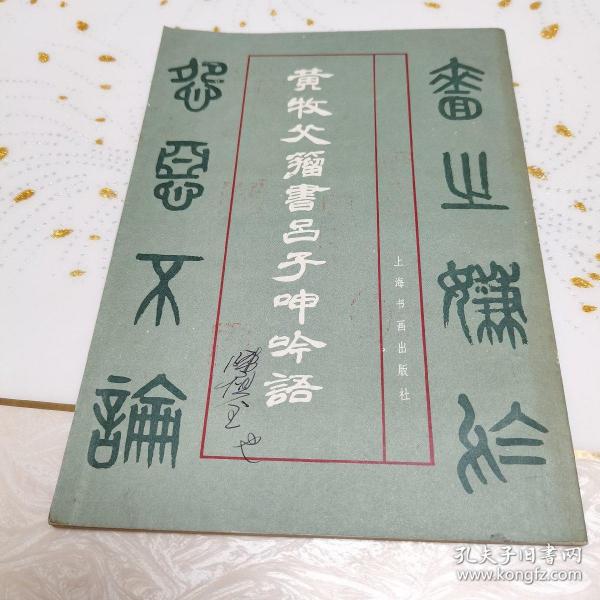 黃牧父籀書呂子呻吟語
上海书画出版社
之嫌於
怨惡不論
孔夫子旧书网
www.kongfz.com